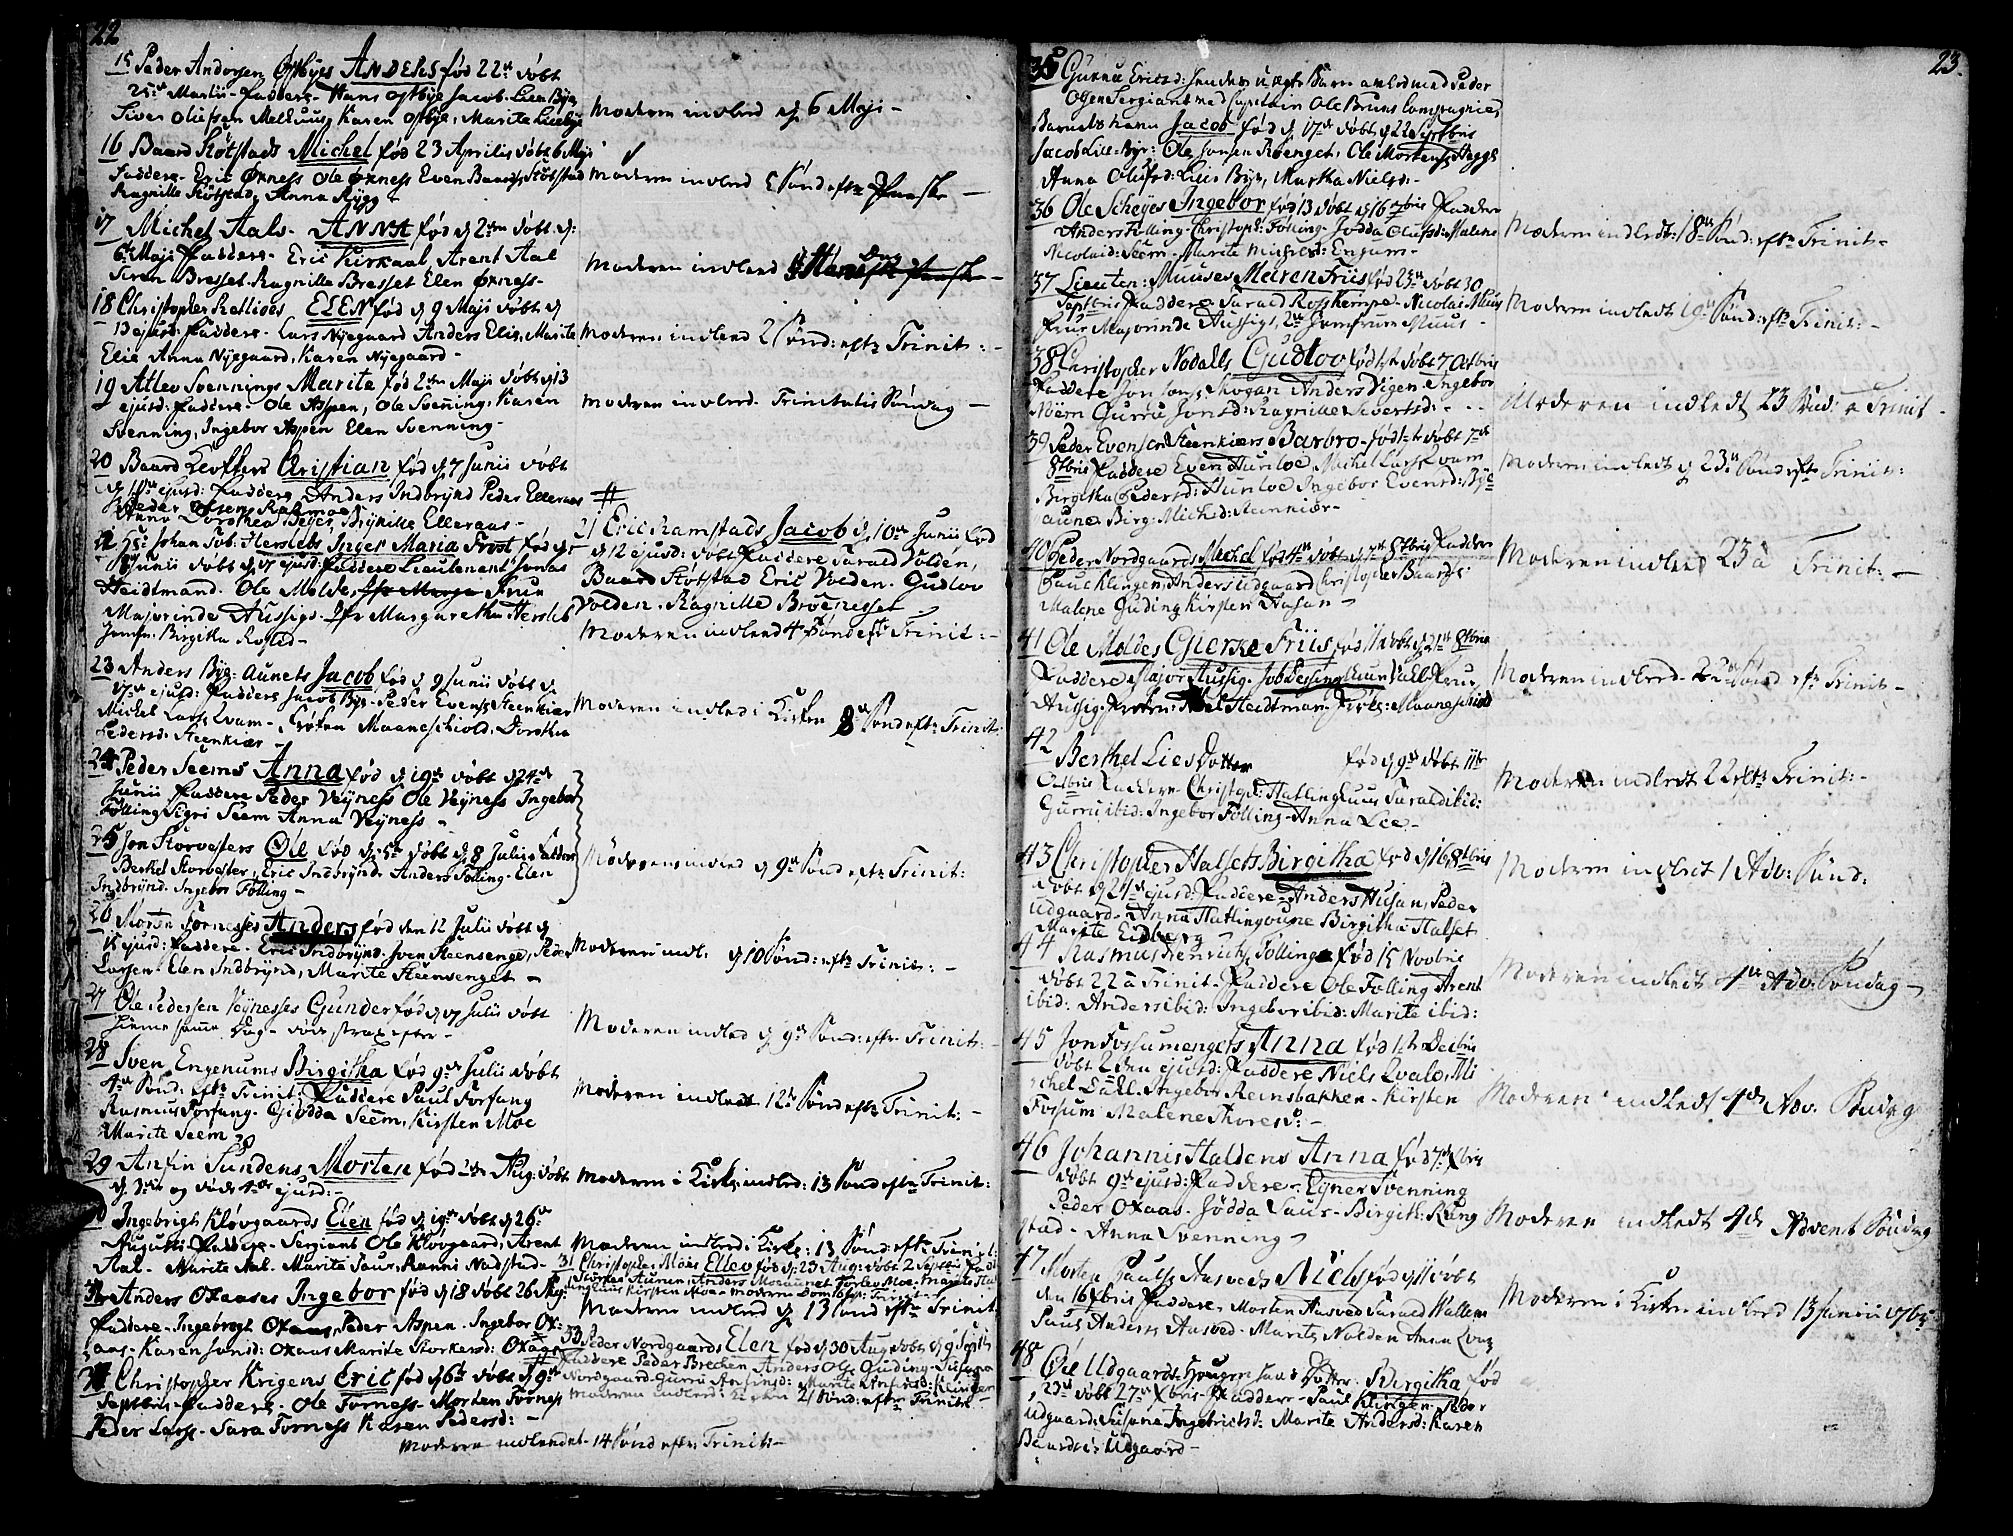 22
15 Peder Andersen Østbyes Anders fød 22de døbt
25de Martii. Faddere. Hans Østbye Jacob Lien Bye
Siver Olufsen Melhuus, Karen Østbye, Marite Liebye
Moderen indled d. 6 Maji -
16 Baard Støtstads Michel fød 23 Aprilis døbt 6 Maji
Faddere. Eric Øxness Ole Øxness Even Baards. Støtstad
Ragnille Støtstad, Anna Rygg -
Moderen indled 5 Sønd. eft. Paaske -
17 Michel Aals. Anna fød d. 2den døbt d.
6te Maji Faddere. Eric Kirkaal, Arent Aal
Siren Bresset. Ragnille Bresset Elen Øxness.
Moderen indled
18 Christopher Rettiges Elen fød d. 9 Maji døbt d.
13 ejusd: Faddere. Lars Nyegaard Anders Elie, Marite
Elie Anna Nyegaard, Karen Nyegaard -
Moderen indled 2 Sønd: eft. Trinit: -
19 Atlev Svennings Marite fød 2den Maji døbt d. 13
ejusd: Faddere. Ole Aspen, Ole Svenning, Karen
Svenning, Ingebor Aspen Elen Svenning -
Moderen indled. Trinitatis Søndag -
20 Baard Kløfters Cristian fød d. 7 Junii døbt
d. 10de ejusd: Faddere Anders Indbrynd Peder Elleraas
Peder Olsen Rahmoe
Anna Dorothea Beyer, Brynille Elleraas -
21 Eric Ramstads Jacob d. 10de Junii fød
d. 12 ejusd: døbt Faddere Harald Volden,
Baard Støtstad Eric Volden. Gudlov
Volden. Ragnille Brøenesset
Moderen indled 4 Sønd eft. Trinit: -
22 Johan Sob: Herslebs Inger Maria Frost fød d.
Junii døbt d. 17 ejusd: Faddere Lieutenant Jonas
Heidtmand. Ole Molde, Frue
Majorinde Aussigs. Margaretha Hersleb
Jomfr: Birgitha Rofted -
23 Anders Bye-Aunets Jacob fød d. 9 Junii døbt d.
17de ejusd: Faddere Jacob Bye. Peder Evens. Steenkier
Michel Lars. Qvam. Frøken Maaneschiold, Dorothea
Pedersd: Steenkier -
Moderen indled i Kirken 8de Sønd eft. Trinit:
24 Peder Seems Anna fød d. 19de døbt d. 24de
Junii Faddere Peder Veyness Ole Veyness Ingebor
Følling Sigri Seem Anna Veyness -
25 Jon Storvesters Ole fød d. 5te døbt d. 8 Julii Faddere
Berthel Storvester, Eric Indbrynd. Anders Følling. Elen
Indbrynd. Ingebor Følling -
Moderen indled d. 9de Sønd eft. Trinit:
26 Morten Forness Anders fød den 12 Julii døbt d.
15 ejusd: Faddere. Eric Indbrynd. Sven Steensenge, Peder
Larsen. Elen Indbrynd, Marite Steensenget -
Moderen indl. d. 10 Sønd: eft. Trinit: -
27 Ole Pedersen Veynesses Gunder fød d. 17 Julii døbt
hieme samme Dag. døde strax efter -
Moderen indled d. 9de Sønd: eft. Trinit: -
28 Sven Engenums Birgitha fød 9de Julii døbt
4de Sønd: eft. Trinit: Faddere Paul Forfang
Rasmus Forfang. Giødda Seem, Kirsten Moe
Marite Seem
Moderen indled 12te Sønd eft. Trinit: -
29 Anfin Sundens Morten fød 2den Aug: døbt
d. 3die og døde 4de ejusd: -
Moderen i Kirke indled: 13 Sønd eft. Trinit:
30 Ingebrigt Kløvgaards Elen fød d. 19de døbt d. 26de
Augusti Faddere. Sergiant Ole Kløvgaard, Arent
Aal. Marite Aal. Marite Saur, Ranni Nadstad. -
Moderen indled i Kirke: 13 Sønd: eft. Trinit:
31 Christopher Moes Ellev fød d. 23 Aug: døbt 2 Septbr Fadd:
Anders Moeaunet Torlev Moe. Marite
Kirsten Moe. Moderen Trinit:
32 Anders Oxaases Ingebor fød d. 18 døbt 26 Aug:
Faddere. Ingebrigt Oxaas, Peder Aspen. Ingebor Ox-
aas. Karen Jonsd: Oxaas Marite Storkersd: Oxaas
Moderen indled d. 13 Sønd eft. Trinit:
33 Peder Nordgaards Elen fød d. 30 Aug: døbt d. 9 Septbr
Faddere Peder Brechen Anders Ols. Guding. Susana
Nordgaard. Gurru Anfinsd: Marite Anfinsd: Klingen
Moderen indled i Kirken 21 Sønd: eft. Trinit: -
34 Christopher Krigens Eric fød d. 6te døbt d. 9de
Septbris Faddere. Ole Forness. Morten Forness
Peder Lars. Sara Forness Karen Pedersd: -
Moderen indlendet 14 Sønd eft. Trinit: -
23.
35 Gurru Ericsd: hendes uægte Barn avled med Peder
Olsen Sergiant ved Capitain Ole Bruns Compagnie,
Barnets Navn Jacob fød d. 17de døbt d. 22 Septbris
Jacob Lill-Bye. Ole Jonsen Røenget. Ole Mortens. Hegge
Anna Olufsd: Lill Bye, Martha Nielsd: -
36 Ole Scheyes Ingebor fød 13 døbt d. 16 7bris Faddere
Anders Følling. Christoph: Følling. Jødda Olufsd: Malene
Nicolaid: Seem. Marite Michelsd: Engum -
Moderen indledt: 18de Sønd: eft. Trinit: -
37 Lieuten: Muuses Meiren Friis fød 25de døbt 30
Septbris Faddere Harald Roskempe. Nicolai Muus
Frue Majorinde Aussigs, 2de Jomfruer Muus -
Moderen indledt 19de Sønd: eft. Trinit: -
38 Christopher Nodalls Gudlov fød 1ste døbt 7 Octbris
Faddere Jon Jons. Skogan Anders Vigen. Ingebor
Moen Gurru Jonsd: Ragnille Sivertsd: - -
Moderen indledt 23 Sønd: a Trinit -
39 Peder Evensen Steenkiers Barbro fød 1ste døbt 7de
8tbris Faddere Even Hunloe, Michel Lars. Qvam
Birgitha Pedersd: Hunloe Ingebor Evensd: Bye
aune Birg: Michd: Steenkier -
Moderen indledt d. 23de Sønd eft. Trinit:
40 Peder Nordgaards Michel fød 4de døbt d. 7de 8tbris Faddere
Paul Klingen, Anders Udgaard Christopher Baards.
Malene Guding Kirsten Ausan -
Moderen indled 23 a Trinit: -
41 Ole Moldes Gierke Friis fød døbt d. 21de 8tbris
Faddere Major Aussig. Job Dessing Huun Frue
Aussig. Frøken Heidtman. Frøk: Maaneschiold
Moderen indled. 22de Sønd eft. Trinit -
42 Berthel Lies Dotter fød d. 9de døbt 11te
Octbris Faddere Christoph: Hatling Harald ibid:
Gurru ibid: Ingebor Følling. Anna Lee -
Moderen indledt 22 eft. Trinit: -
43 Christopher Halsets Birgitha fød d. 16 8tbris
døbt d. 21de ejusd: Faddere. Anders Ausan, Peder
Udgaard. Anna Hatlingoune Birgitha Halset
Marite Eidberg
Moderen indledt 1 Adv: Sønd:
44 Rasmus Henrichs. Føllinge fød 15 Novbris
døbt 22 a Trinit. Faddere Ole Følling Arent
ibid: Anders ibid: Ingebor ibid: Marite ibid:
Moderen indledt 4de Adv: Søndag -
45 Jon Fossumengets Anna fød 1ste Decbris
døbt 2den ejusd: Faddere Niels Qvale, Mi-
chel Dall. Ingebor Reinsbakken. Kirsten
Fossum Malene Thoresd: -
Moderen indledt 4de Adv: Søndag
46 Johannis Haldens Anna fød 7de Xbris
døbt 9de ejusd: Faddere. Eyner Svenning
Peder Oxaas. Jødda Saur. Birgith: Rung
stad. Anna Svenning -
Moderen indledt 4de Advent Søndag
47 Morten Pauls. Aasveds Niels fød d. 11 døbt
den 16 Xbris Faddere, Morten Aasved Harald Wallem
Paul Anders. Aasved. Marite Nolden Anna
Moderen i Kirken indled 13 Junii 1763
48 Ole Udgaards. Haugen hans Dotter Birgitha fød
23de døbt 27de Xbris. Faddere. Paul Klingen. Peder
Udgaard. Susana Ingebrictsd: Marite Andersd: Karen
Baardsd: Udgaard -